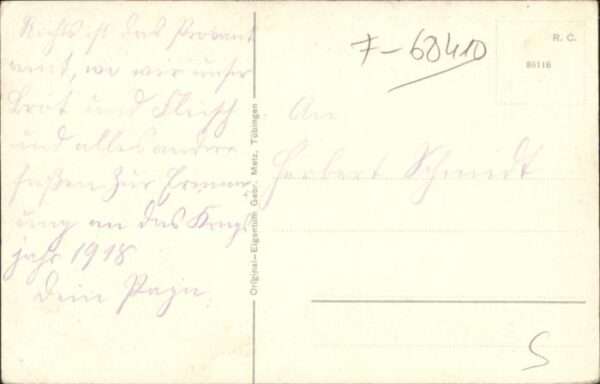 Rechts ist das Proviant
amt, wo wir unser
Brot und Fleisch
und alles andere
Zur Erinner
ung an das Kriegs
jahr 1918
Dein Papa
Original-Eigentum Gebr. Metz, Tübingen
F-60410
R. C.
86116
An
Herbert Schmidt
S